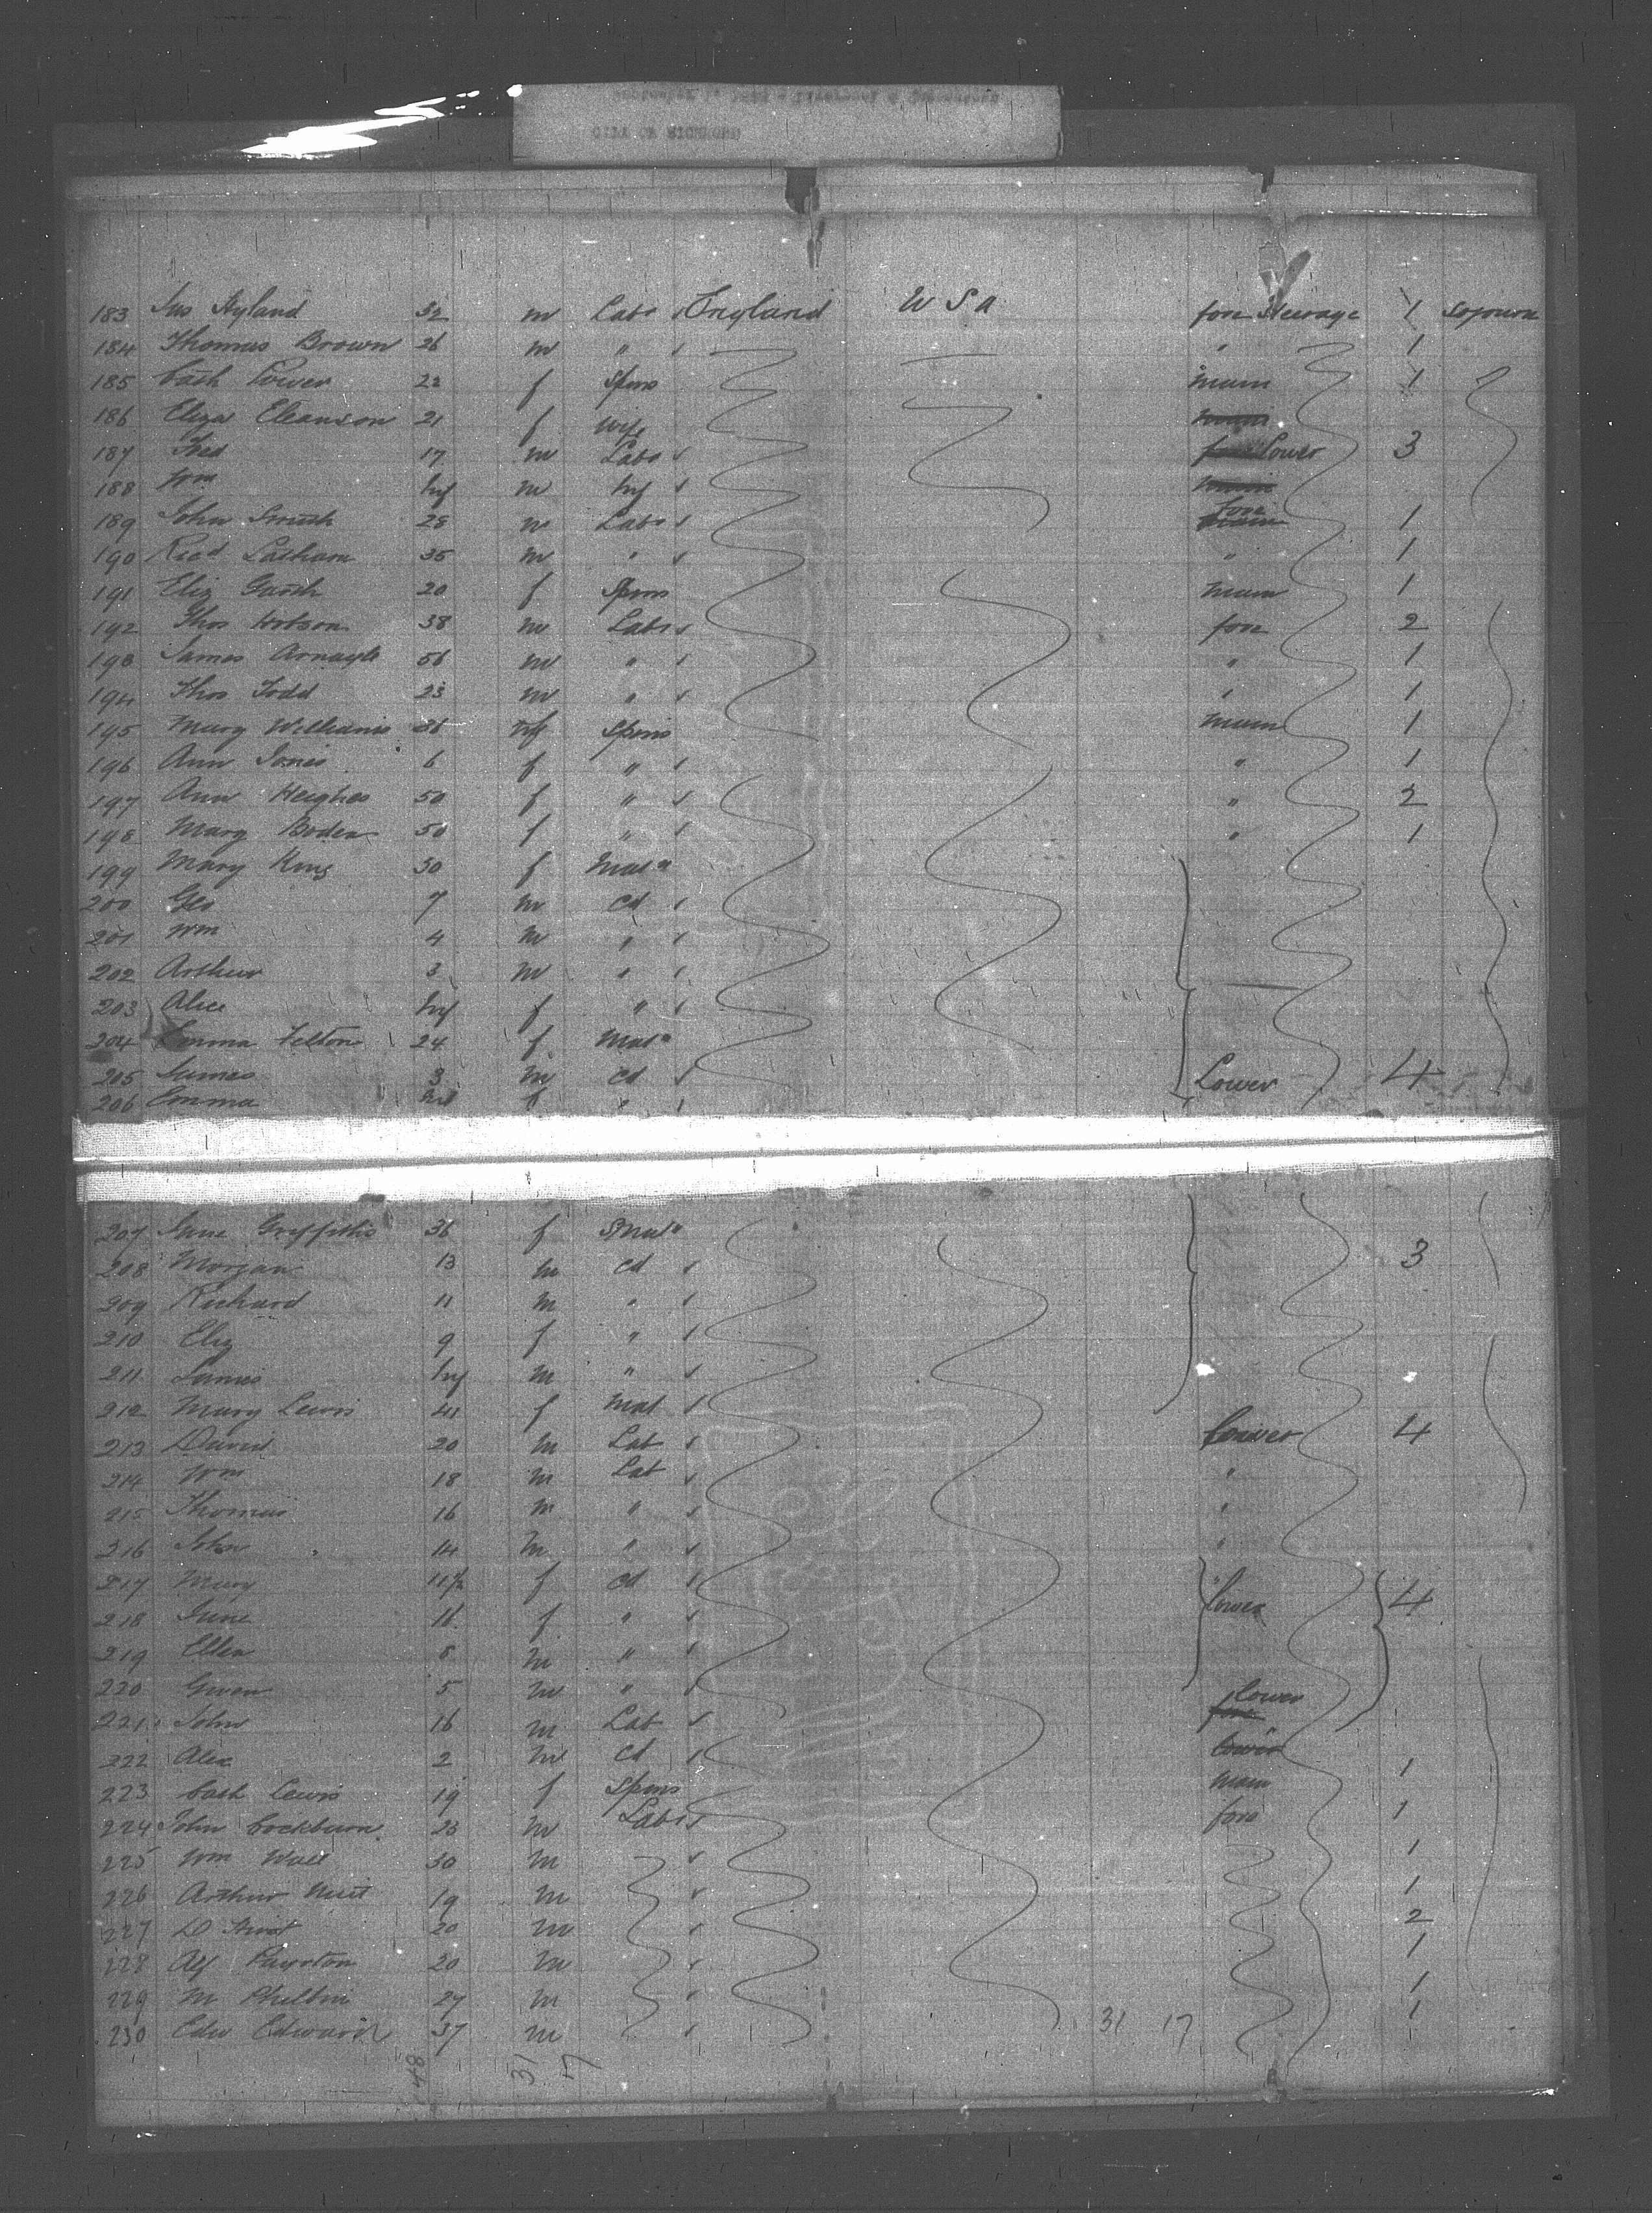 CITY OF RICHMOND
183 Jas Hyland 32 m Labr England U S A fore Steerage 1 Sojourn
184 Thomas Brown 26 m " " 1
185 Cath Power 22 f Spins main 1
186 Eliza 21 f wife main
187 Fred 17 m Labr Lower 3
188 Wm Inf m Inf main
189 John Smith 28 m Labr fore 1
190 Ricd Latham 35 m " " 1
191 Eliz Garth 20 f Spins main 1
192 Thos Hobson 38 m Labr fore 2
193 James 56 m " " 1
194 Thos Todd 23 m " " 1
195 Mary Williams 36 f Spins main 1
196 Ann Jones 6 f " " 1
197 Ann Heighes 50 f " " 2
198 Mary Boden 50 f " " 1
199 Mary King 30 f Matn
200 Geo 7 m Cd
201 Wm 4 m "
202 Arthur 3 m "
203 Alice Inf f "
204 Emma Felton 24 f Matn
205 James 3 m Cd Lower 4
206 Emma Inf f "
207 Jane Griffiths 36 f Matn
208 Morgan 13 m Cd 3
209 Richard 11 m "
210 Eliz 9 f "
211 James Inf m "
212 Mary Lewis 41 f Mat
213 David 20 m Lab Lower 4
214 Wm 18 m Lab "
215 Thomas 16 m " "
216 John 14 m " "
217 Mary 11½ f Cd
218 Jane 16 f " Lower 4
219 Ellen 8 m "
220 Gwen 5 m "
221 John 16 m Lab Lower fore
222 Alex 2 m Cd Lower
223 Cath Lewis 19 f Spins main 1
224 John Cockburn 23 m Labr fore 1
225 Wm Wall 30 m 1
226 Arthur 19 m 1
227 D 20 m 2
228 Alf 20 m 1
229 M Philbin 27 m 1
230 Edw Edwards 37 m 31 17 1
48 31 17